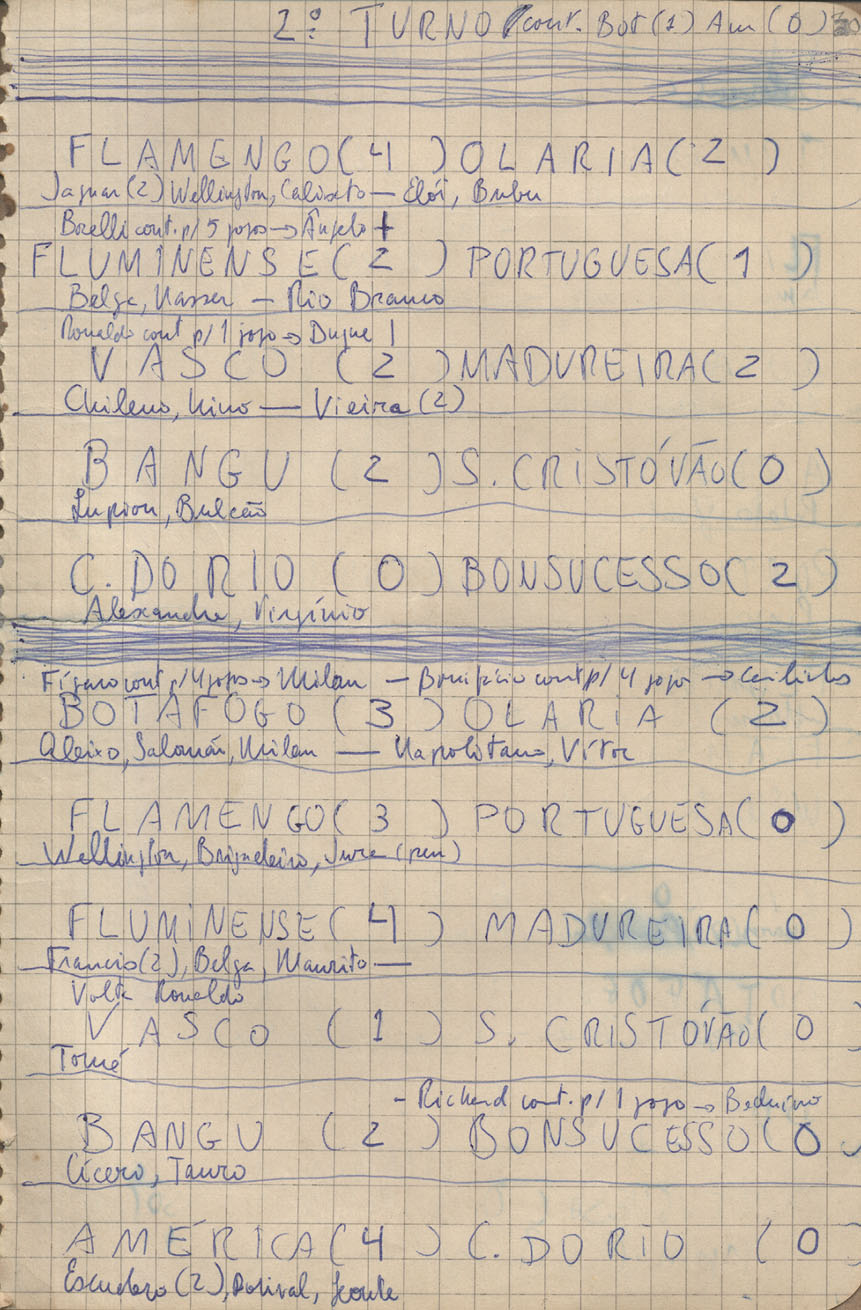 2º TURNO cont. Bot (1) Am (0)
FLAMENGO ( 4 ) OLARIA ( 2 )
Jaguar (2) Wellington, Calixto — Elói, Bubu
Borelli cont. p/ 5 jogos → Ângelo
FLUMINENSE ( 2 ) PORTUGUESA ( 1 )
Belga, Nasser — Rio Branco
Ronaldo cont p/ 1 jogo → Duque
VASCO ( 2 ) MADUREIRA ( 2 )
Chileno, Nino — Vieira (2)
BANGU ( 2 ) S. CRISTÓVÃO ( 0 )
Lupion, Bulcão
C. DO RIO ( 0 ) BONSUCESSO ( 2 )
Alexandre, Virgínio
Fígaro cont p/ 4 jogos → Milan — Bonifácio cont p/ 4 jogos →
BOTAFOGO ( 3 ) OLARIA ( 2 )
Aleixo, Salomão, Milan — Napolitano, Vítor
FLAMENGO ( 3 ) PORTUGUESA ( 0 )
Wellington, Brigadeiro, (pen)
FLUMINENSE ( 4 ) MADUREIRA ( 0 )
Francis (2), Belga, Maurito —
Volta Ronaldo
VASCO ( 1 ) S. CRISTÓVÃO ( 0
Tomé
- Richard cont. p/ 1 jogo → Beduíno
BANGU ( 2 ) BONSUCESSO ( 0
Cícero, Tauro
AMÉRICA ( 4 ) C. DO RIO ( 0
Escudero (2), Dorival,